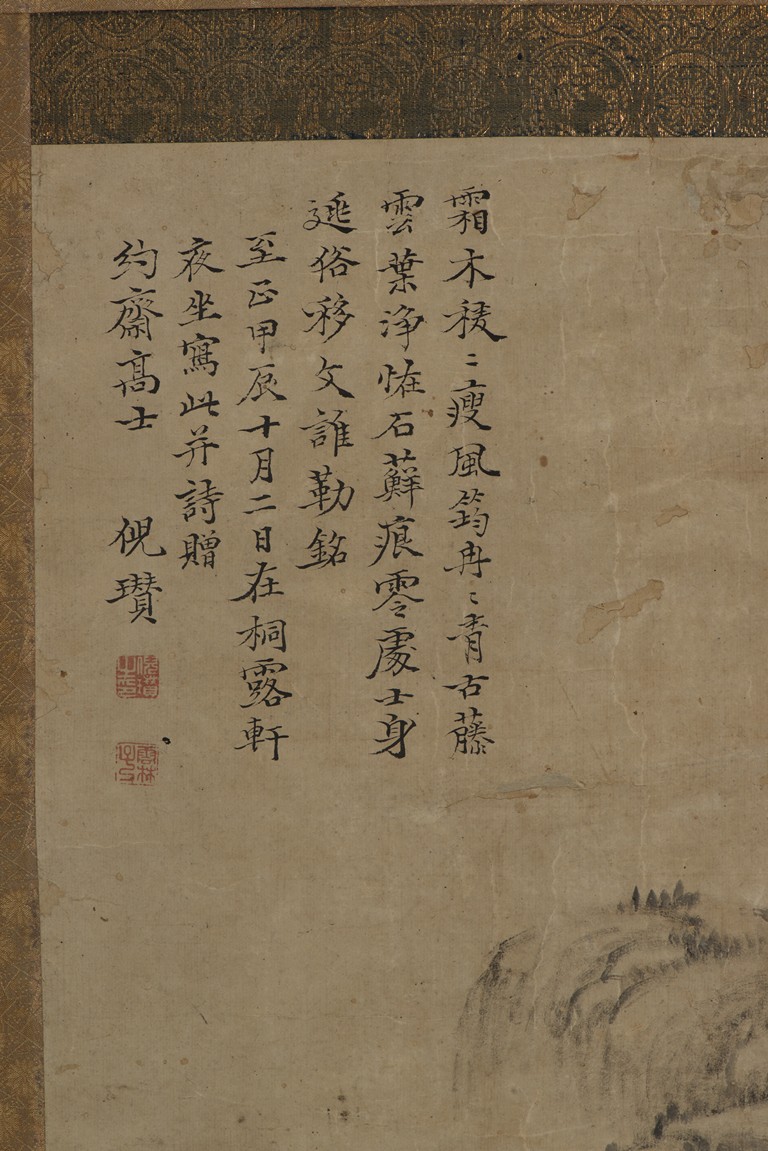 霜木稜〻瘦風筠冉〻青古藤
雲葉淨恠石蘚痕零處士身
逃俗移文誰勒銘
至正甲辰十月二日在桐露軒
夜坐寫此并詩贈
約齋髙士 倪瓚
雲林